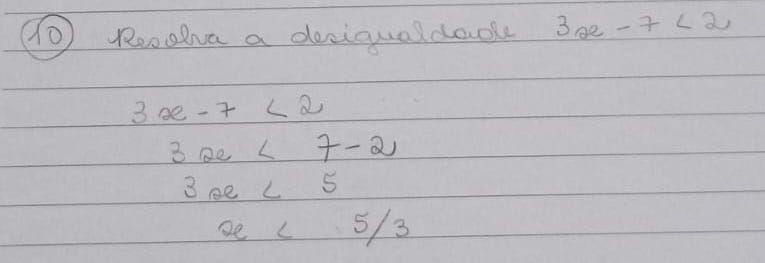 10 Resolva a desigualdade 3x - 7 < 2
3x - 7 < 2
3x < 7 - 2
3x < 5
x < 5/3